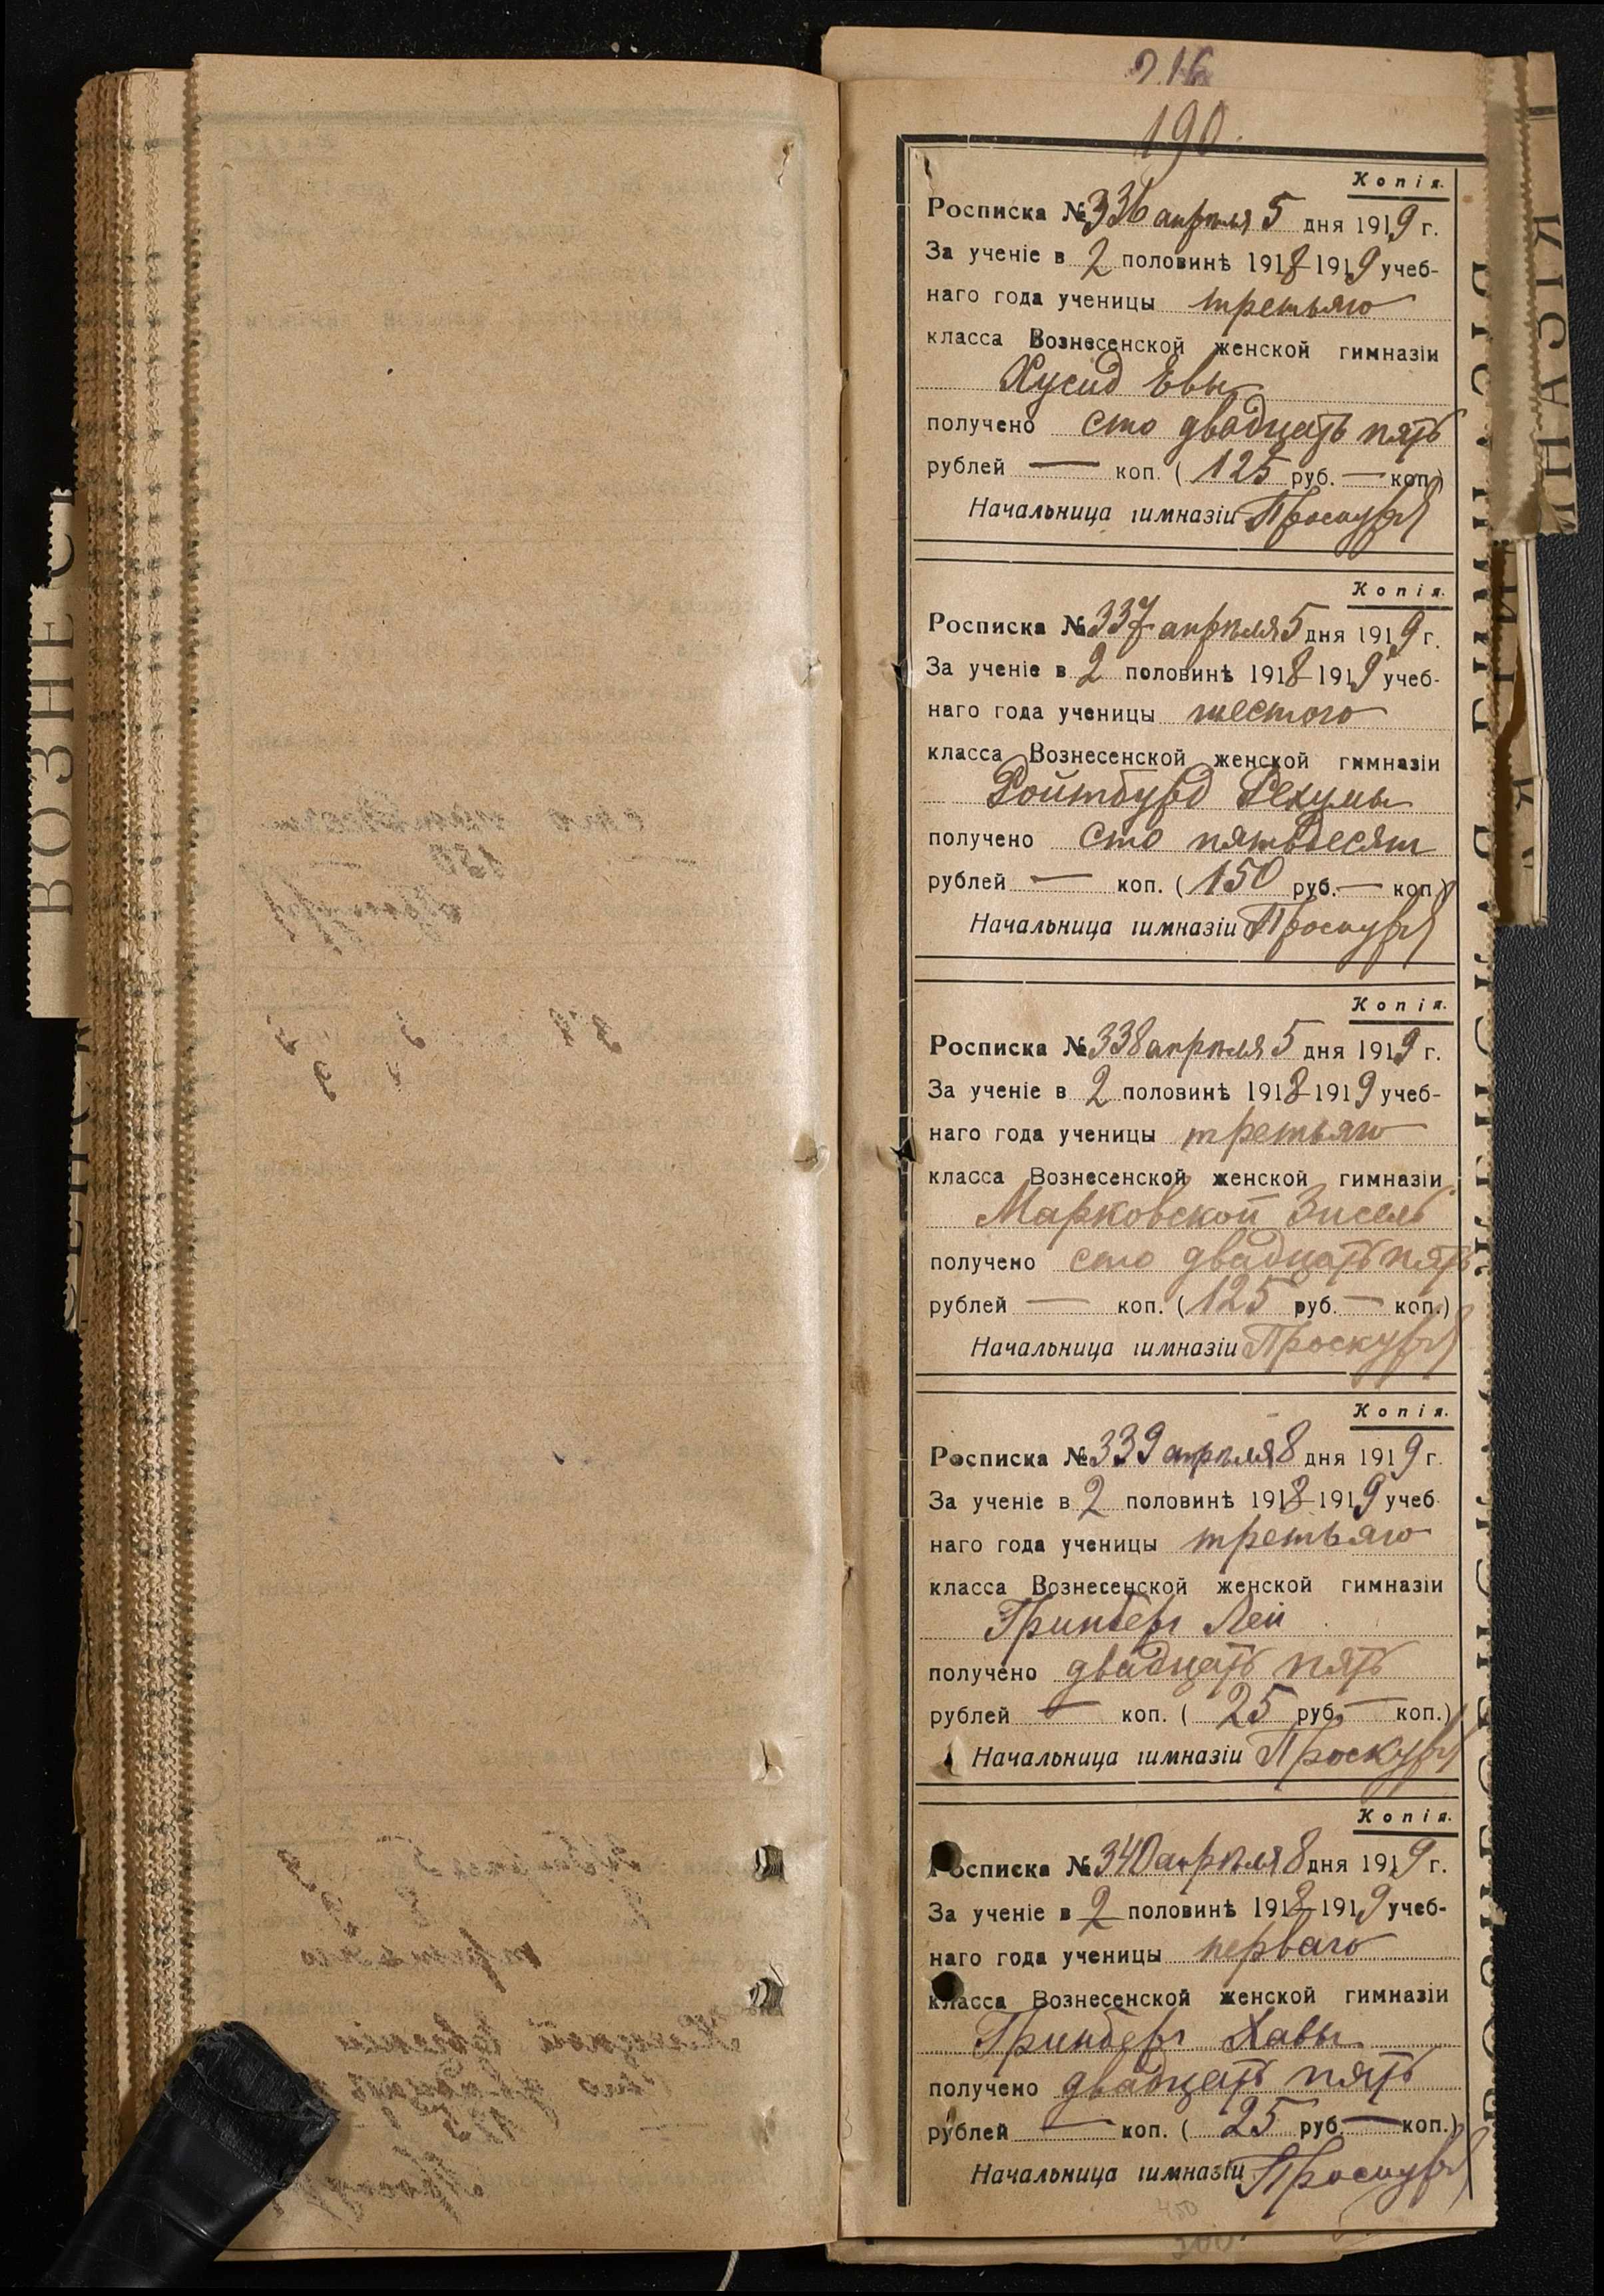 216
190.
Копія.
Росписка № 336 апрѣля 5 дня 1919 г.
За ученіе в 2 половинѣ 1918-1919 учеб-
наго года ученицы третьяго
класса Вознесенской женской гимназіи
Хусид Евы
получено сто двадцать пять
рублей — коп. (125 руб. — коп.)
Начальница гимназіи
Копія.
Росписка № 337 апрѣля 5 дня 1919 г.
За ученіе в 2 половинѣ 1918-1919 учеб-
наго года ученицы шестого
класса Вознесенской женской гимназіи
Ройтбурд Рехумы
получено сто пятьдесят
рублей — коп. (150 руб. — коп.)
Начальница гимназіи
Копія.
Росписка № 338 апрѣля 5 дня 1919 г.
За ученіе в 2 половинѣ 1918-1919 учеб-
наго года ученицы третьяго
класса Вознесенской женской гимназіи
Марковской Зисель
получено сто двадцать пять
рублей — коп. (125 руб. — коп.)
Начальница гимназіи
Копія.
Росписка № 339 апрѣля 8 дня 1919 г.
За ученіе в 2 половинѣ 1918-1919 учеб
наго года ученицы третьяго
класса Вознесенской женской гимназіи
Гринберг Леи
получено двадцать пять
рублей — коп. (25 руб. — коп.)
Начальница гимназіи
Копія.
Росписка № 340 апрѣля 8 дня 1919 г.
За ученіе в 2 половинѣ 1918-1919 учеб-
наго года ученицы перваго
класса Вознесенской женской гимназіи
Гринберг Хавы
получено двадцать пять
рублей — коп. (25 руб. — коп.)
Начальница гимназіи
450
ВОЗНЕС